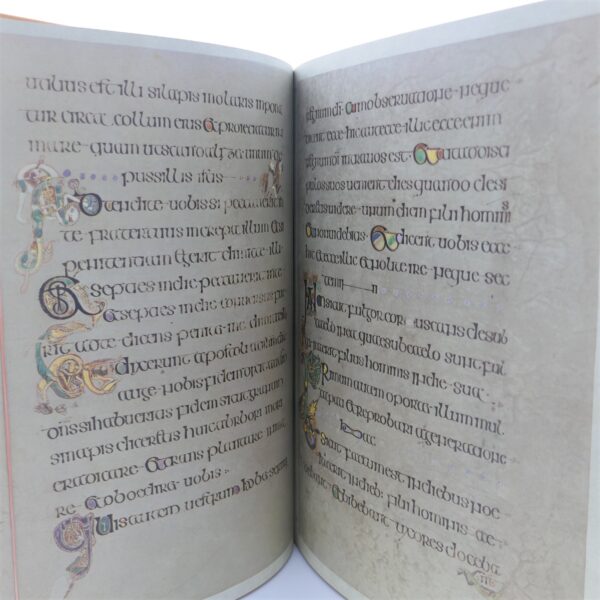 utilius est illi si lapis molaris inpona
tur circa collum eius et proieciatur in
mare quam ut
pussillis istis
Adtendite uobis si peccauerit in
te frater tuus increpa illum et si
penitentiam egerit dimitte illi
septies in die peccauerit in te
septies in die conuersus fue
rit ad te dicens penitet me
Et dixerunt apostoli
auge nobis fidem dixit autem
dns si habueritis fidem sicut granum
sinapis dicetis huic arbori mori
eradicare et transplantare in ma
re et oboediret uobis
Quis autem uestrum habens
regnum di cum obseruatione neque
dicent ecce hic aut ecce illic ecce enim
regnum di intra uos est Et ait ad dis
pulos uenient dies quando desi
deretis uidere unum diem filii hominis
et non uidebitis Et dicent uobis ecce
hic ecce illic nolite ire neque sec
temini
Nam sicut fulgor coruscans de sub
caelo in ea quae sub caelo sunt ful
get ita erit filius hominis in die sua
Primum autem oportet illum mul
ta pati et reprobari a generatione
hac
Et sicut factum est in diebus noe
ita erit in dieb: filii hominis
et bibebant uxores duceba
nt